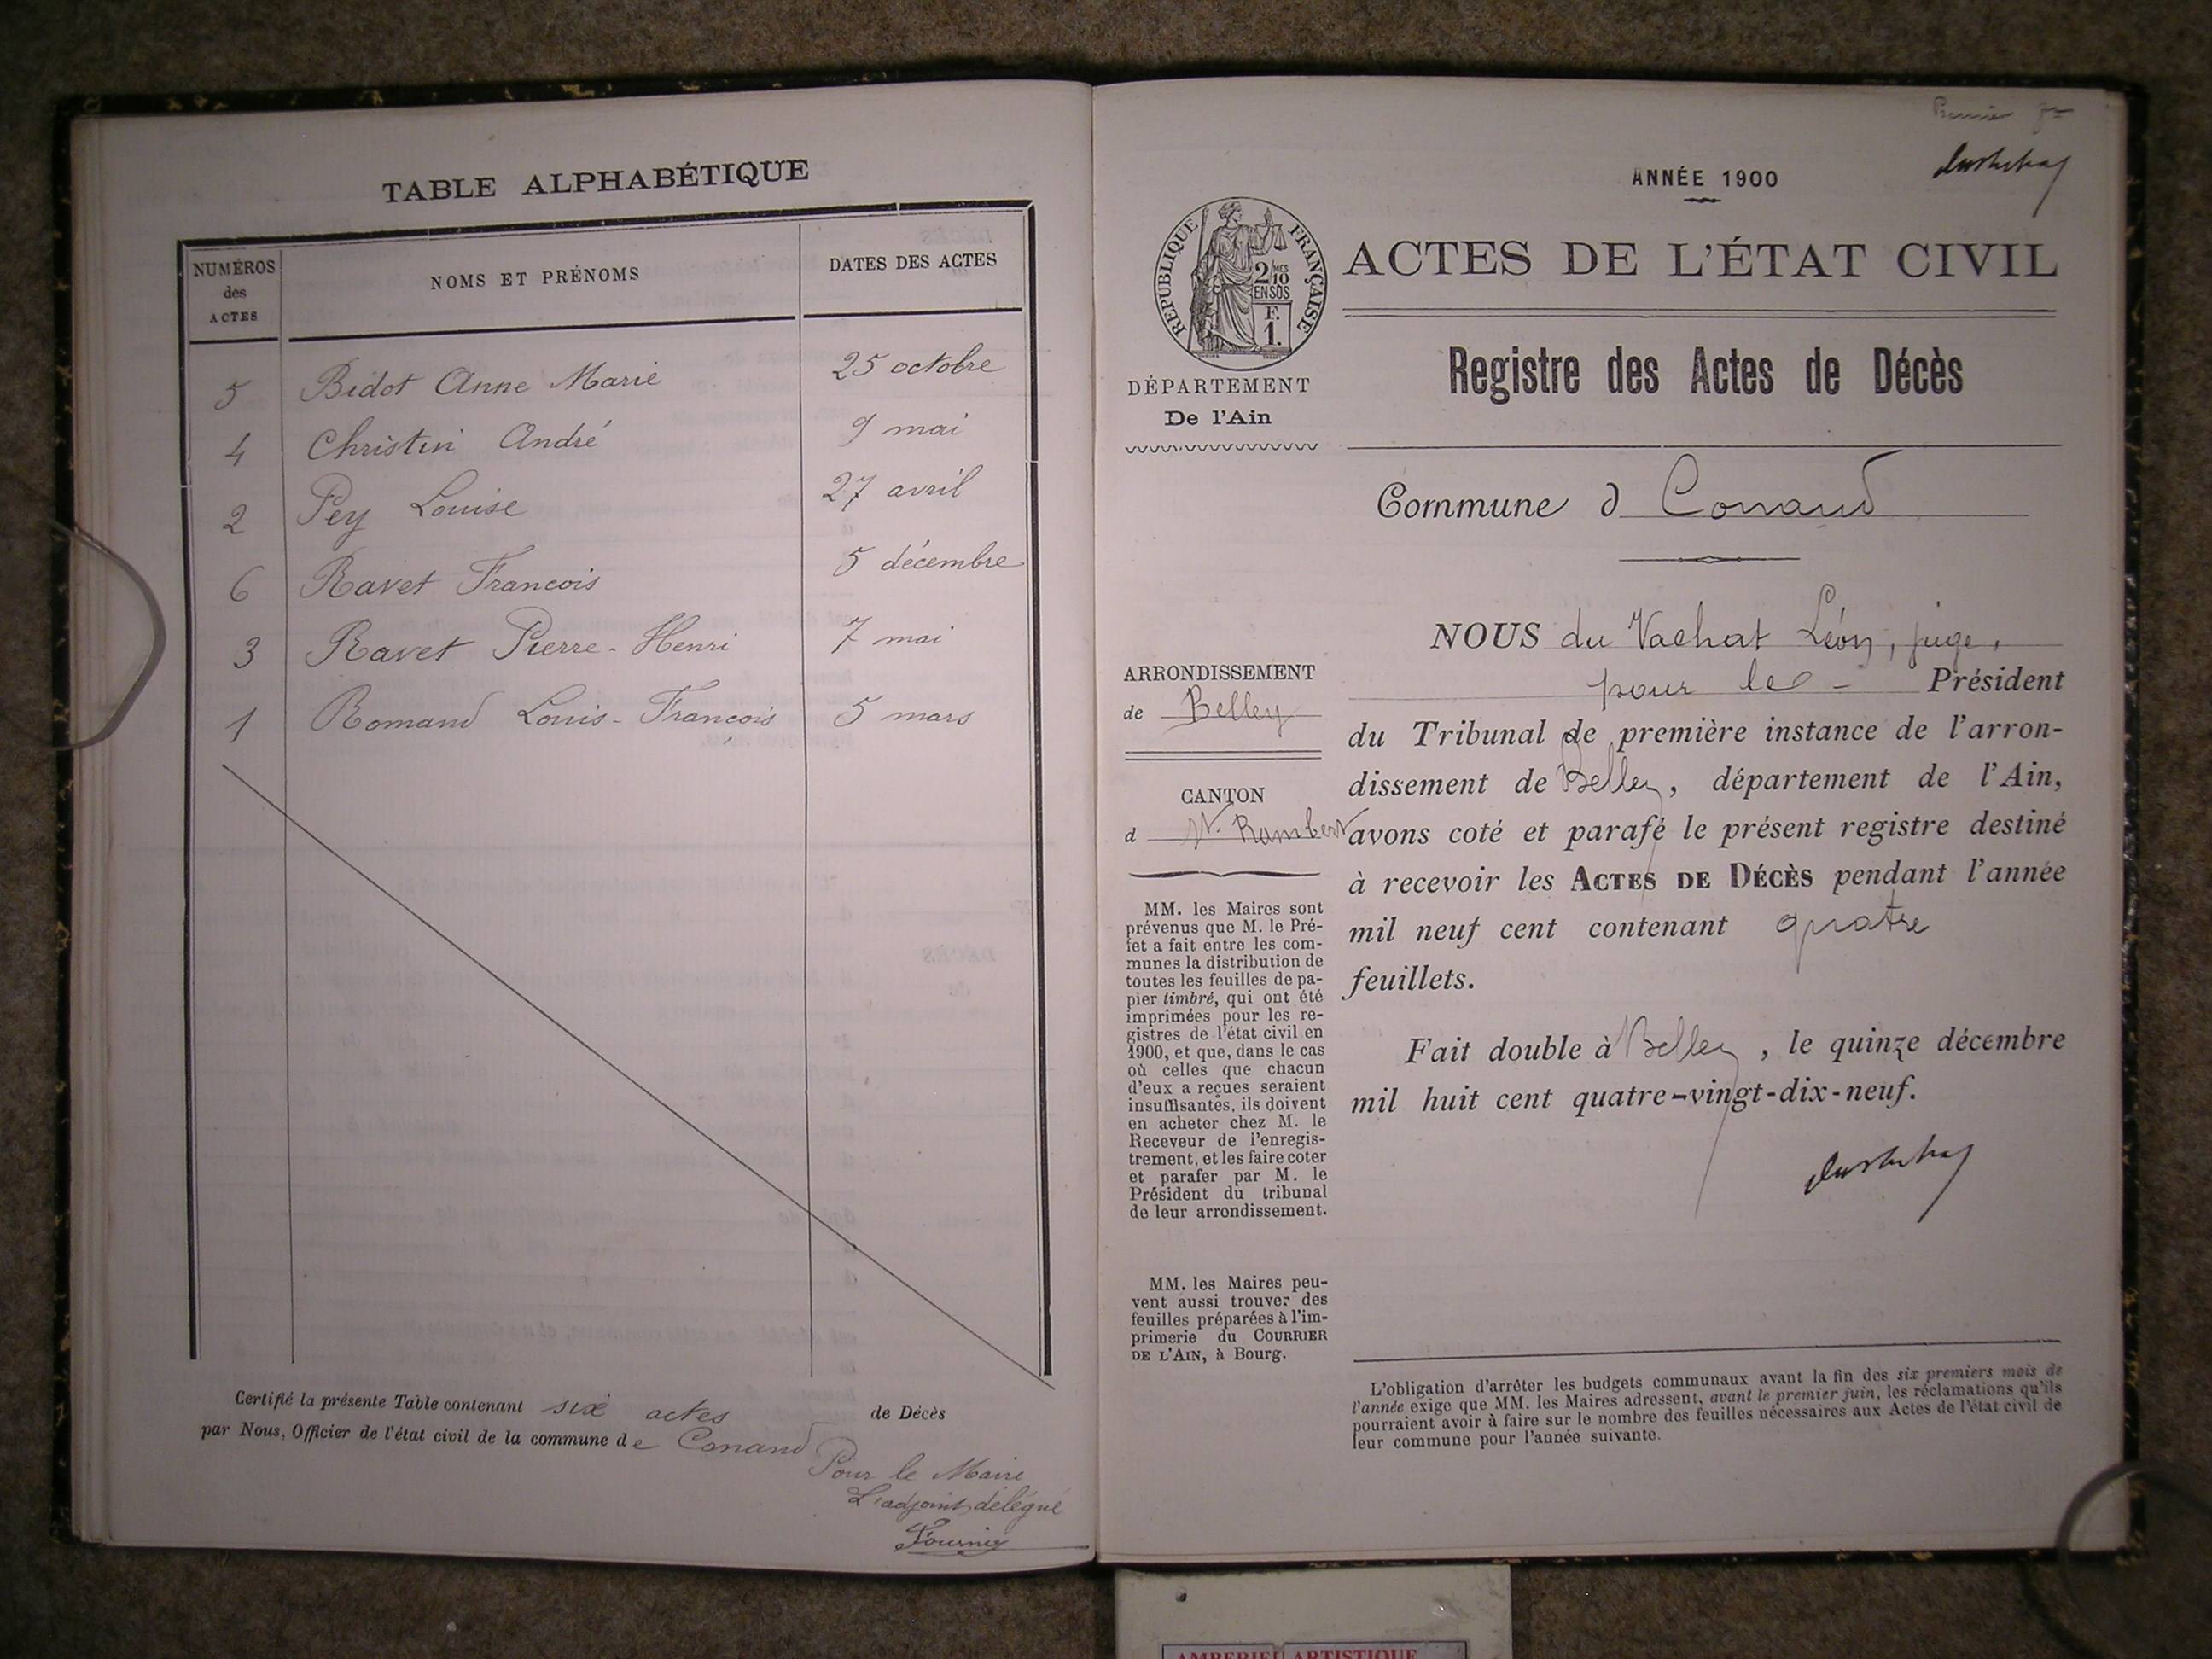 TABLE ALPHABÉTIQUE
NUMÉROS des ACTES
NOMS ET PRÉNOMS
DATES DES ACTES
5 Bidot Anne Marie 25 octobre
4 Christin André 9 mai
2 Pey Louise 27 avril
6 Ravet Francois 5 décembre
3 Ravet Pierre-Henri 7 mai
1 Romand Louis-Francois 5 mars
Certifié la présente Table contenant six actes de Décès
par Nous, Officier de l'état civil de la commune de Conand
Pour le Maire
L'adjoint délégué
Fournier
Premier
ANNÉE 1900
RÉPUBLIQUE FRANÇAISE
2/10 MES
EN SUS
F.
1.
ACTES DE L'ÉTAT CIVIL
DÉPARTEMENT
De l'Ain
Registre des Actes de Décès
Commune d Conand
ARRONDISSEMENT
de Belley
CANTON
d St. Rambert
MM. les Maires sont
prévenus que M. le Pré-
fet a fait entre les com-
munes la distribution de
toutes les feuilles de pa-
pier timbré, qui ont été
imprimées pour les re-
gistres de l'état civil en
1900, et que, dans le cas
où celles que chacun
d'eux a reçues seraient
insuffisantes, ils doivent
en acheter chez M. le
Receveur de l'enregis-
trement, et les faire coter
et parafer par M. le
Président du tribunal
de leur arrondissement.
MM. les Maires peu-
vent aussi trouver des
feuilles préparées à l'im-
primerie du COURRIER
DE L'AIN, à Bourg.
NOUS du Vachat Léon, juge,
pour le - Président
du Tribunal de première instance de l'arron-
dissement de Belley, département de l'Ain,
avons coté et parafé le présent registre destiné
à recevoir les ACTES DE DÉCÈS pendant l'année
mil neuf cent contenant quatre
feuillets.
Fait double à Belley, le quinze décembre
mil huit cent quatre-vingt-dix-neuf.
L'obligation d'arrêter les budgets communaux avant la fin des six premiers mois de
l'année exige que MM. les Maires adressent, avant le premier juin, les réclamations qu'ils
pourraient avoir à faire sur le nombre des feuilles nécessaires aux Actes de l'état civil de
leur commune pour l'année suivante.
AMBERIEU ARTISTIQUE